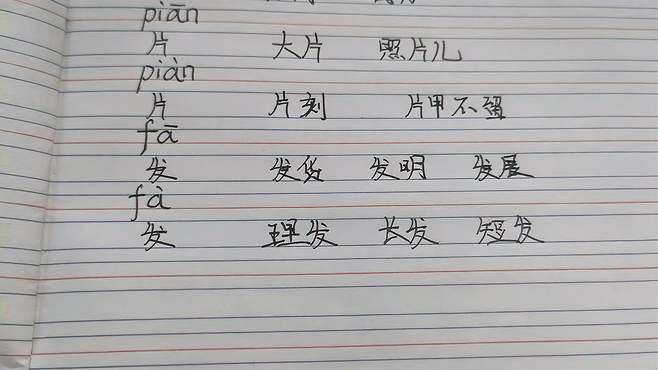 piān
片 大片 照片儿
piàn
片 片刻 片甲不留
fā
发 发货 发明 发展
fà
发 理发 长发 短发